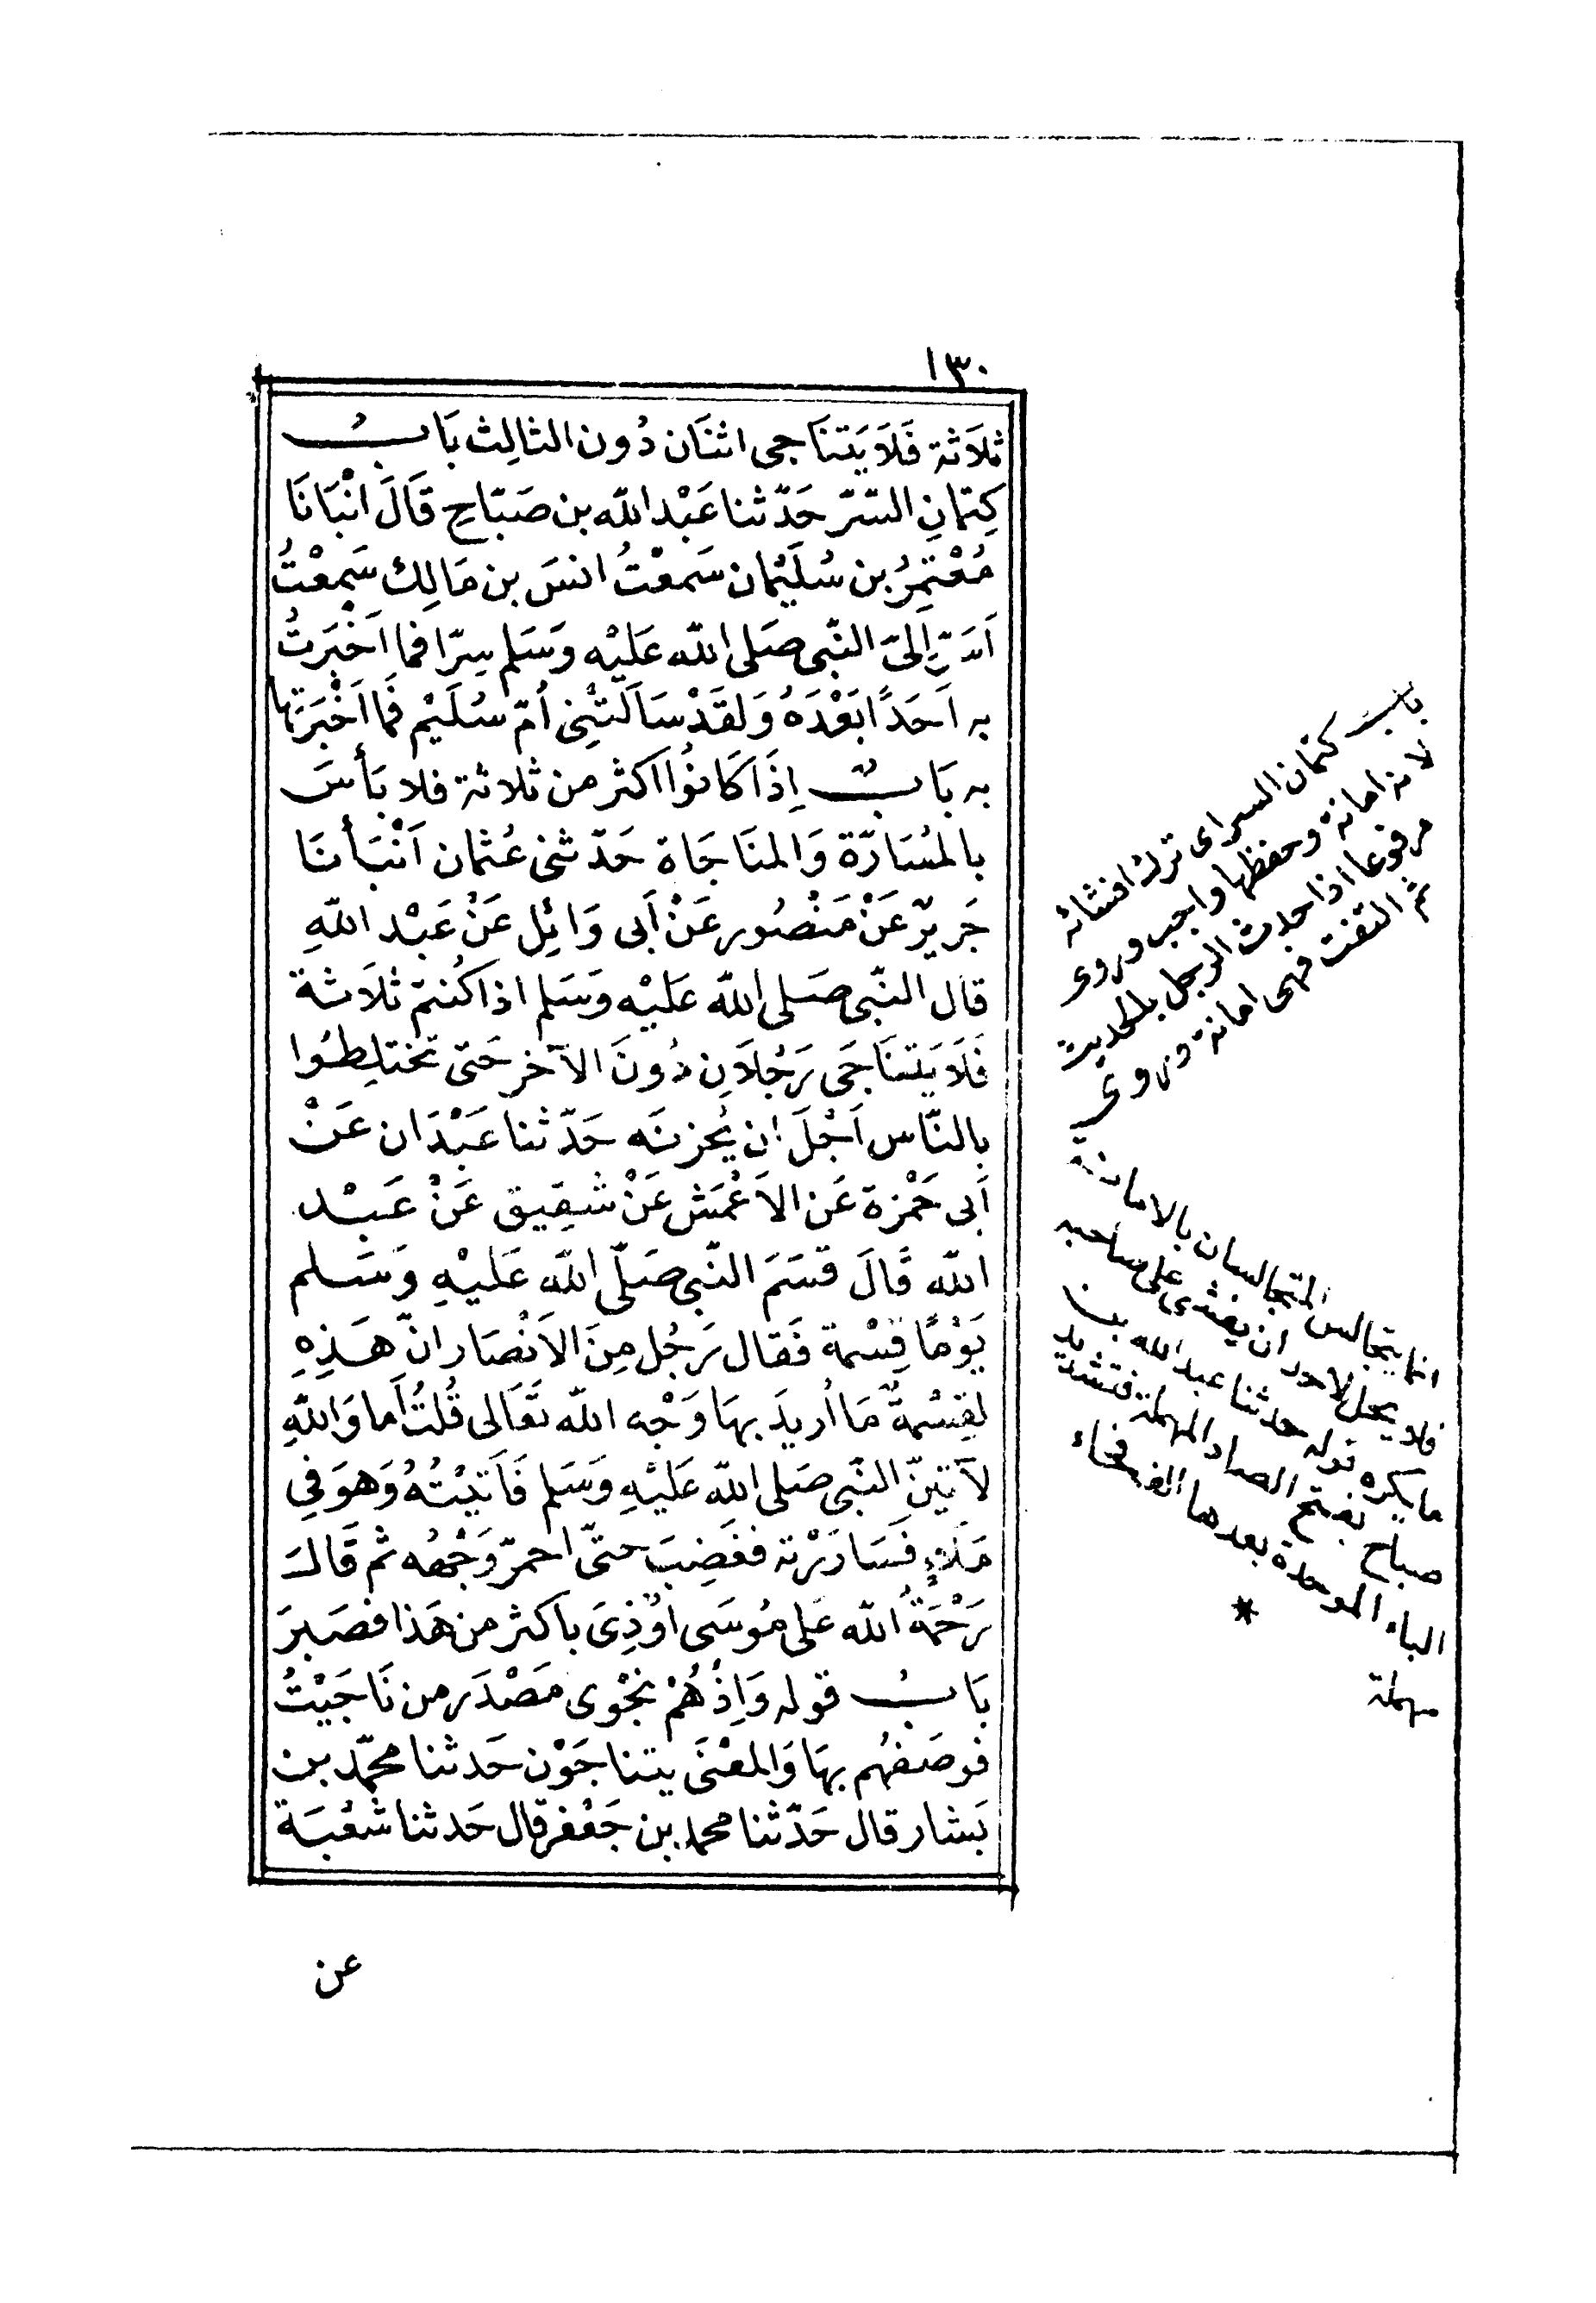 ١٣٠
ثلَاَثة فَلَا يَتنَاجى اثنَان دُون الثالِث بَابُ
كِتمانِ السّرّ حَدّثنا عَبْد الله بن صَبّاحِ قَالَ انْبَانَا
مُعْتمِرُ بن سُلَيْمان سَمعْتُ انسَ بن مَالِك سَمِعْتُ
اَسَرّ اِلىّ النّبى صَلى الله عَلَيْه وَسَلم سِرّا فما اَخْبَرتُ
به اَحَدًا بَعْدَهُ وَلقَدْ سَاَلَتْنِى اُمّ سُلَيْم فَمَا اَخْبَرَتها
به بَابٌ اِذَا كَانوُا اكثر من ثلاثة فلا بَأسَ
بالمسَُارّة وَالمنَاجَاة حَدّثنى عُثمان اَنْبَأنا
جَريرٌ عَنْ مَنْصُور عَنْ اَبى وَائِل عَنْ عَبْد اللهِ
قال النّبى صَلى الله عَليْه وَسَلم اذا كُنتمْ ثلَاَثة
فَلَا يَتنَاجَى رَجُلَانِ دُونَ الآخر حَتى تختلِطُوا
بالنّاس اَجْلَ ان يُحزنَه حَدّثنا عَبْدَان عَنْ
اَبى حَمْزة عَن الاَعْمَش عَنْ شقِيق عَنْ عَبْد
الله قَالَ قسَمَ النّبى صَلّى الله عَليْهِ وَسَلم
يَوْمًا قِسْمة فَقال رَجُل مِنَ الاَنْصَار انّ هَذِهِ
لقِسْمةٌ مَا اُريدَ بهَا وَجْه الله تَعَالى قُلتُ اَما وَاللهِ
لآتينّ النّبى صَلى الله عَليْهِ وَسَلم فَاَتيْتُهُ وَهوَ فى
مَلاءٍ فَسَارَرْته فغَضِبَ حتّى احمرّ وَجْهه ثم قَالَ
رَحْمَةُ الله عَلى مُوسَى اوُذِىَ باكثر من هَذا فصَبرَ
بَابُ قوله وَاِذْ هُمْ نجْوى مَصْدَر من نَاجَيْتُ
فوصَفهُم بهَا وَالمعْنَى يتناجَوْن حَدثنا محمّد بن
بَشار قال حَدّثنا محمد بن جَعْفر قال حَدثنا شعْبَة
عن
باب كتمان السر اى ترك افشائه
لانه امانة وحفظها واجب وروى
مرفوعا اذا حدث الرجل بالحديث
ثم التفت فهى امانة وروى
انما يتجالس المتجالسان بالامانة
فلا يحل لاحد ان يفشى على صاحبه
ما يكره قوله حدثنا عبد الله بن
صباح بفتح الصاد المهملة فتشديد
الباء الموحدة بعدها الف فحاء
مهملة
*